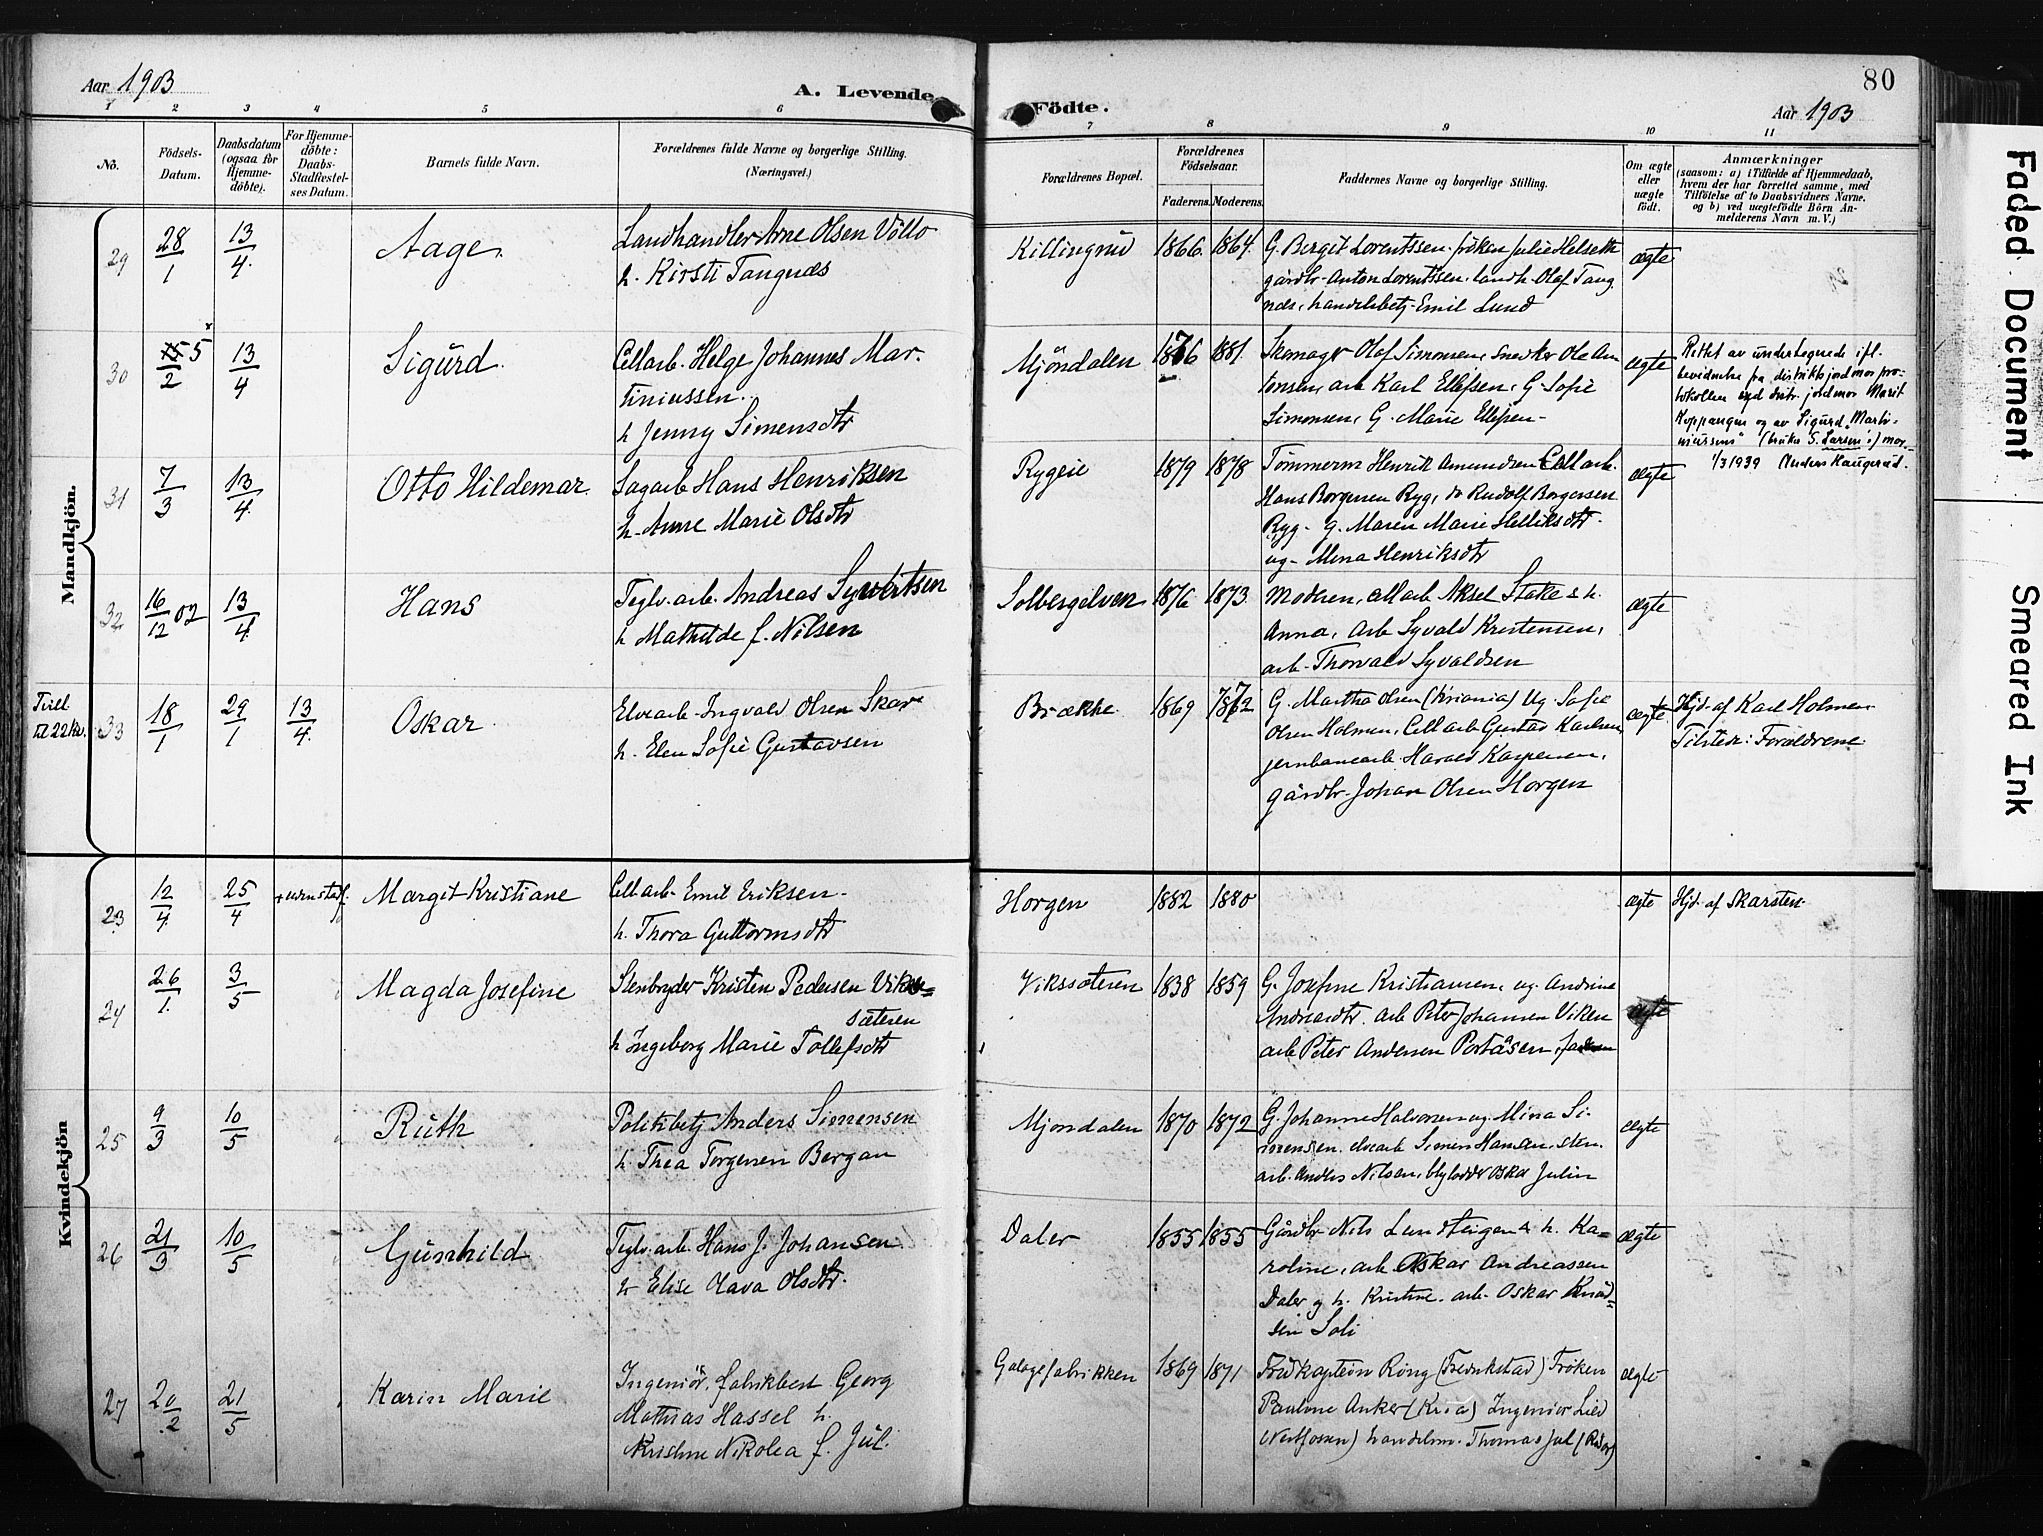 Aar 1903
A. Levende
Födte.
Aar 1903
80
1 2 3 4 5 6 7 8 9 10 11
No.
Födsels-Datum.
Daabsdatum (ogsaa for Hjemme-döbte).
For Hjemme-döbte: Daabs-Stadfæstel-ses Datum.
Barnets fulde Navn.
Forældrenes fulde Navne og borgerlige Stilling.
(Næringsvei.)
Forældrenes Bopæl.
Forældrenes Födselsaar.
Faderens. Moderens.
Faddernes Navne og borgerlige Stilling.
Om ægte eller uægte födt.
Anmærkninger
(saasom: a) i Tilfælde af Hjemmedaab,
hvem der har forrettet samme, med
Tilföielse af to Daabsvidners Navne,
og b) ved uægtefödte Börn An-
melderens Navn m. V.)
Mandkjön.
29 28/1 13/4 Aage. Landhandler Arne Olsen Völlo
h. Kirsti Tangnæs
Killingrud 1866. 1864. G. Bergit Lorentssen, fröken Julie Helseth
gårdbr. Anton Lorentssen, landh. Olaf Tang
næs, handelsbetj. Emil Lund
ægte
30 5/2 13/4 Sigurd. Cellarb. Helge Johannes Mar.
tiniussen.
h. Jenny Simensdtr
Mjöndalen 1876 1881. Skomager Olaf Simonsen, Snedker Ole An
tonsen, arb Karl Ellefsen, G. Sofie
Simonsen, G. Marie Ellefsen
ægte
Rettet av undertegnede ifl.
bevidnelse fra distriktsjordmor pro-
tokollen ved distr. jordmor Marit
Koppangen og av Sigurd "Marti-
niussens" (bruker S. Larsen) mor
1/3 1939 Anders Haugerud.
31 7/3 13/4 Otto Hildemar. Sagarb Hans Henriksen
h. Anne Marie Olsdtr
Rygeie 1879 1878 Tömmerm Henrik Amundsen Cellarb.
Hans Borgersen Ryg, do Rudolf Borgersen
Ryg. G. Maren Marie Helliksdtr.
ug. Mina Henriksdtr
ægte
32 16/12 02 13/4 Hans Teglv. arb. Andreas Syvertsen
h Mathilde f. Nilsen
Solbergelven 1876 1873. Modren, cellarb Aksel Stake & h.
Anna, Arb Syvald Kristensen,
arb. Thorvald Syvaldsen
ægte
Tvill. til 22 Kv.
33 18/1 29/1 13/4 Oskar Elvearb. Ingvald Olsen Skar
h. Elen Sofie Gustavsen
Brække 1869 1872 G. Martha Olsen (Kristiania) Ug Sofie
Olsen Holmen, Cellarb Gustav Karlsen
jernbanearb Harald Kaspersen,
gårdbr. Johan Olsen Horgen
ægte.
Hjd. af Karl Holmen
Tilsted: Forældrene
Kvindekjön
23 12/4 25/4 Margit Kristiane Cellarb. Emil Eriksen
h. Thora Guttormsdtr
Horgen 1882 1880 ægte Hjd. af Skarsten
24 26/1 3/5 Magda Josefine Stenbryder Kristen Pedersen Viks=
sæteren
h Ingeborg Marie Tollefsdtr
Vikssæteren 1838 1859 G. Josefine Kristiansen, ug. Andrine
Andreasdtr. arb Peter Johansen Viken
arb Peter Andersen Portåsen, faderen
ægte
25 9/3 10/5 Ruth Politibetj Anders Simensen
h. Thea Torgersen Bergan
Mjöndalen 1870 1872 G. Johanne Halvorsen ug. Mina Si-
mensen. elvearb Simen Hansen, sten.
arb. Anders Nilsen, blylodder Oskar Julin
ægte
26 21/3 10/5 Gunhild Teglv. arb. Hans J. Johansen
h Elise Olava Olsdtr.
Daler 1855 1855 Gårdbr Nils Lundteigen & h. Ka=
roline, arb Oskar Andreassen
Daler og h. Kristine. arb. Oskar Knud=
sen Soli
ægte
27 20/2 21/5 Karin Marie Ingeniör, fabrikbest Georg
Mathias Hassel h.
Kristine Nikolea f. Jul.
Galagefabrikken 1869 1871 Fröken
Pauline Anker (Kr.a) Ingeniör Lied
(Vestfossen) handelsm. Thomas Jul (Risör)
ægte
Faded Document
Smeared Ink